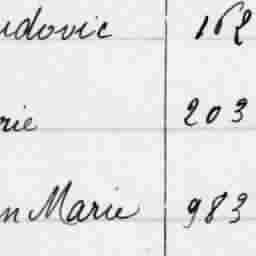 udovic 162
rie 203
n Marie 983